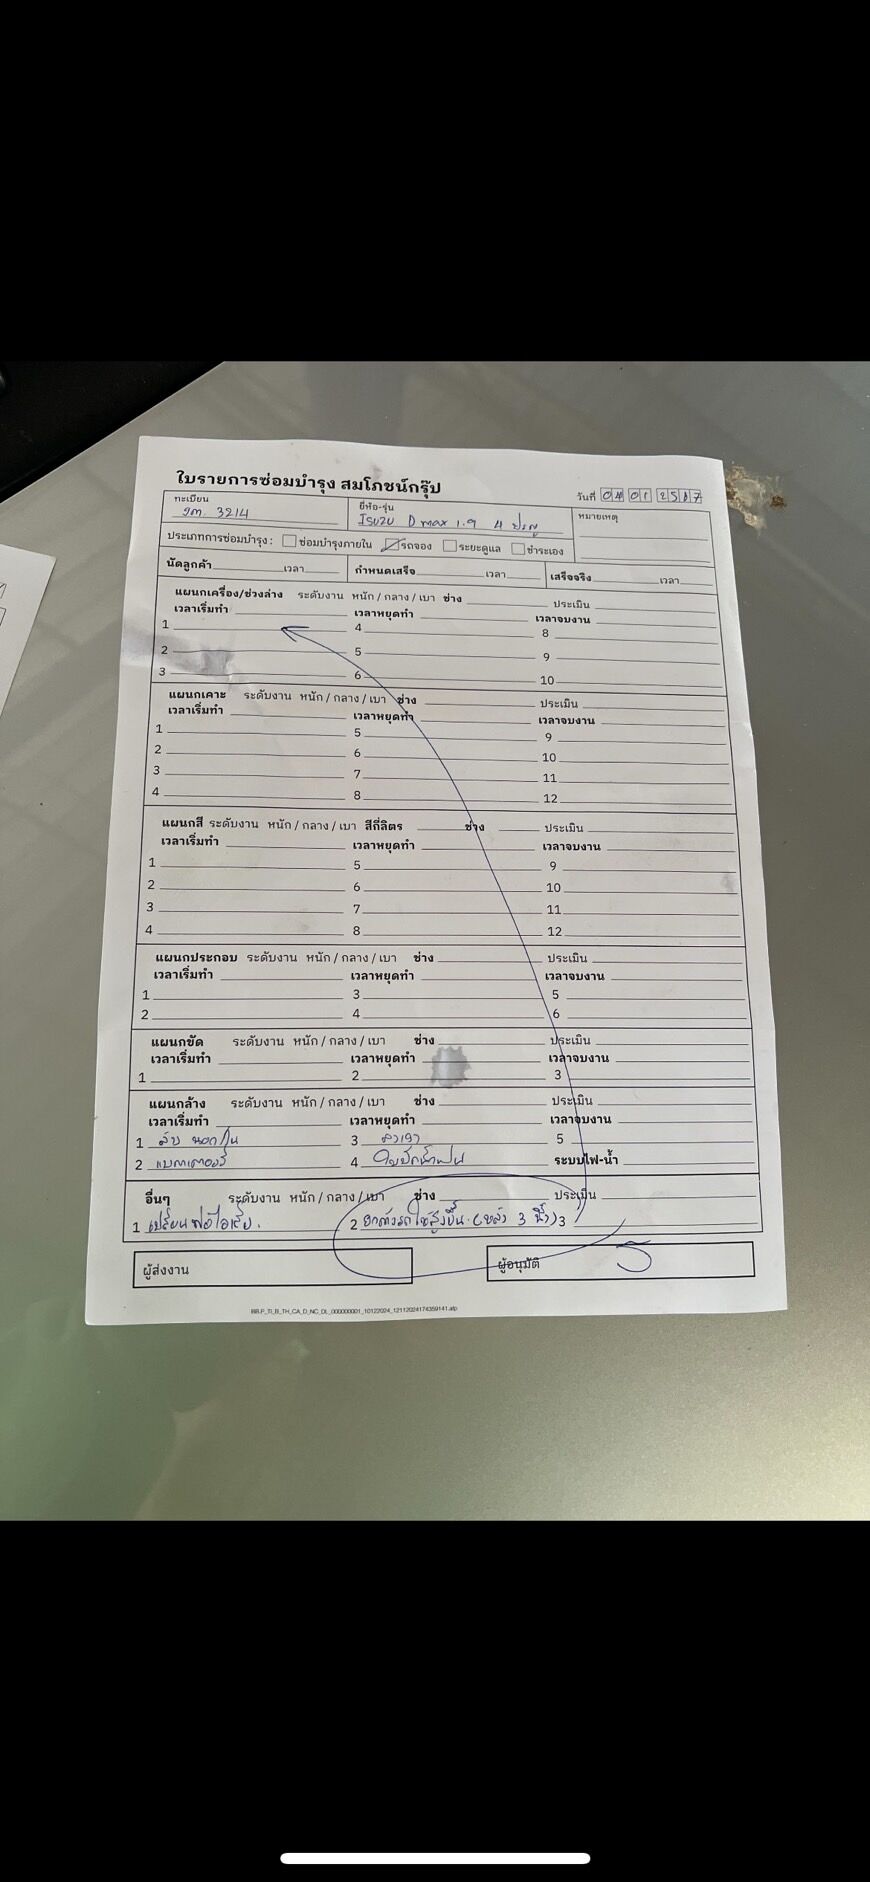 ใบรายการซ่อมบำรุง สมโภชน์กรุ๊ป
วันที่ 04 01 25
ทะเบียน 3214 ยี่ห้อ-รุ่น ISUZU Dmax 1.9 4 ประตู หมายเหตุ
ประเภทการซ่อมบำรุง : ซ่อมบำรุงภายใน รถจอง ระยะดูแล ชำระเอง
นัดลูกค้า เวลา กำหนดเสร็จ เวลา เสร็จจริง เวลา
แผนกเครื่อง/ช่วงล่าง ระดับงาน หนัก / กลาง / เบา ช่าง ประเมิน
เวลาเริ่มทำ เวลาหยุดทำ เวลาจบงาน
1 4 8
2 5 9
3 6 10
แผนกเคาะ ระดับงาน หนัก / กลาง / เบา ช่าง ประเมิน
เวลาเริ่มทำ เวลาหยุดทำ เวลาจบงาน
1 5 9
2 6 10
3 7 11
4 8 12
แผนกสี ระดับงาน หนัก / กลาง / เบา สีกี่ลิตร ช่าง ประเมิน
เวลาเริ่มทำ เวลาหยุดทำ เวลาจบงาน
1 5 9
2 6 10
3 7 11
4 8 12
แผนกประกอบ ระดับงาน หนัก / กลาง / เบา ช่าง ประเมิน
เวลาเริ่มทำ เวลาหยุดทำ เวลาจบงาน
1 3 5
2 4 6
แผนกขัด ระดับงาน หนัก / กลาง / เบา ช่าง ประเมิน
เวลาเริ่มทำ เวลาหยุดทำ เวลาจบงาน
1 2 3
แผนกล้าง ระดับงาน หนัก / กลาง / เบา ช่าง ประเมิน
เวลาเริ่มทำ เวลาหยุดทำ เวลาจบงาน
1 3 5
2 แบตเตอรี่ 4 ใบปัดน้ำฝน ระบบไฟ-น้ำ
อื่นๆ ระดับงาน หนัก / กลาง / เบา ช่าง ประเมิน
1 เปลี่ยนท่อไอเสีย. 2 ยกตัวรถให้สูงขึ้น. (หลัง 3 นิ้ว) 3
ผู้ส่งงาน ผู้อนุมัติ
BB.F_TI_B_TH_CA_D_NC_DL_000000001_10122024_12112024174359141.atp